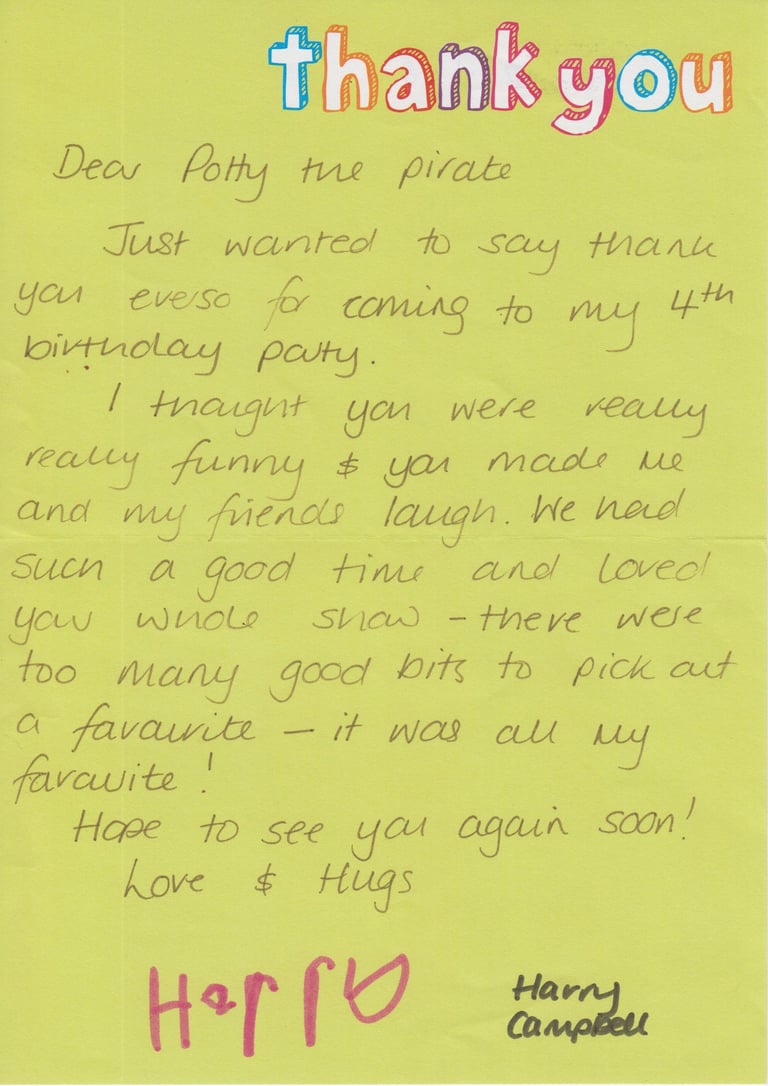 thank you
Dear Potty the pirate
Just wanted to say thank
you everso for coming to my 4th
birthday party.
I thought you were really
really funny & you made me
and my friends laugh. We had
such a good time and loved
your whole show - there were
too many good bits to pick out
a favourite - it was all my
favourite!
Hope to see you again soon!
Love & Hugs
Harry
Harry
Campbell